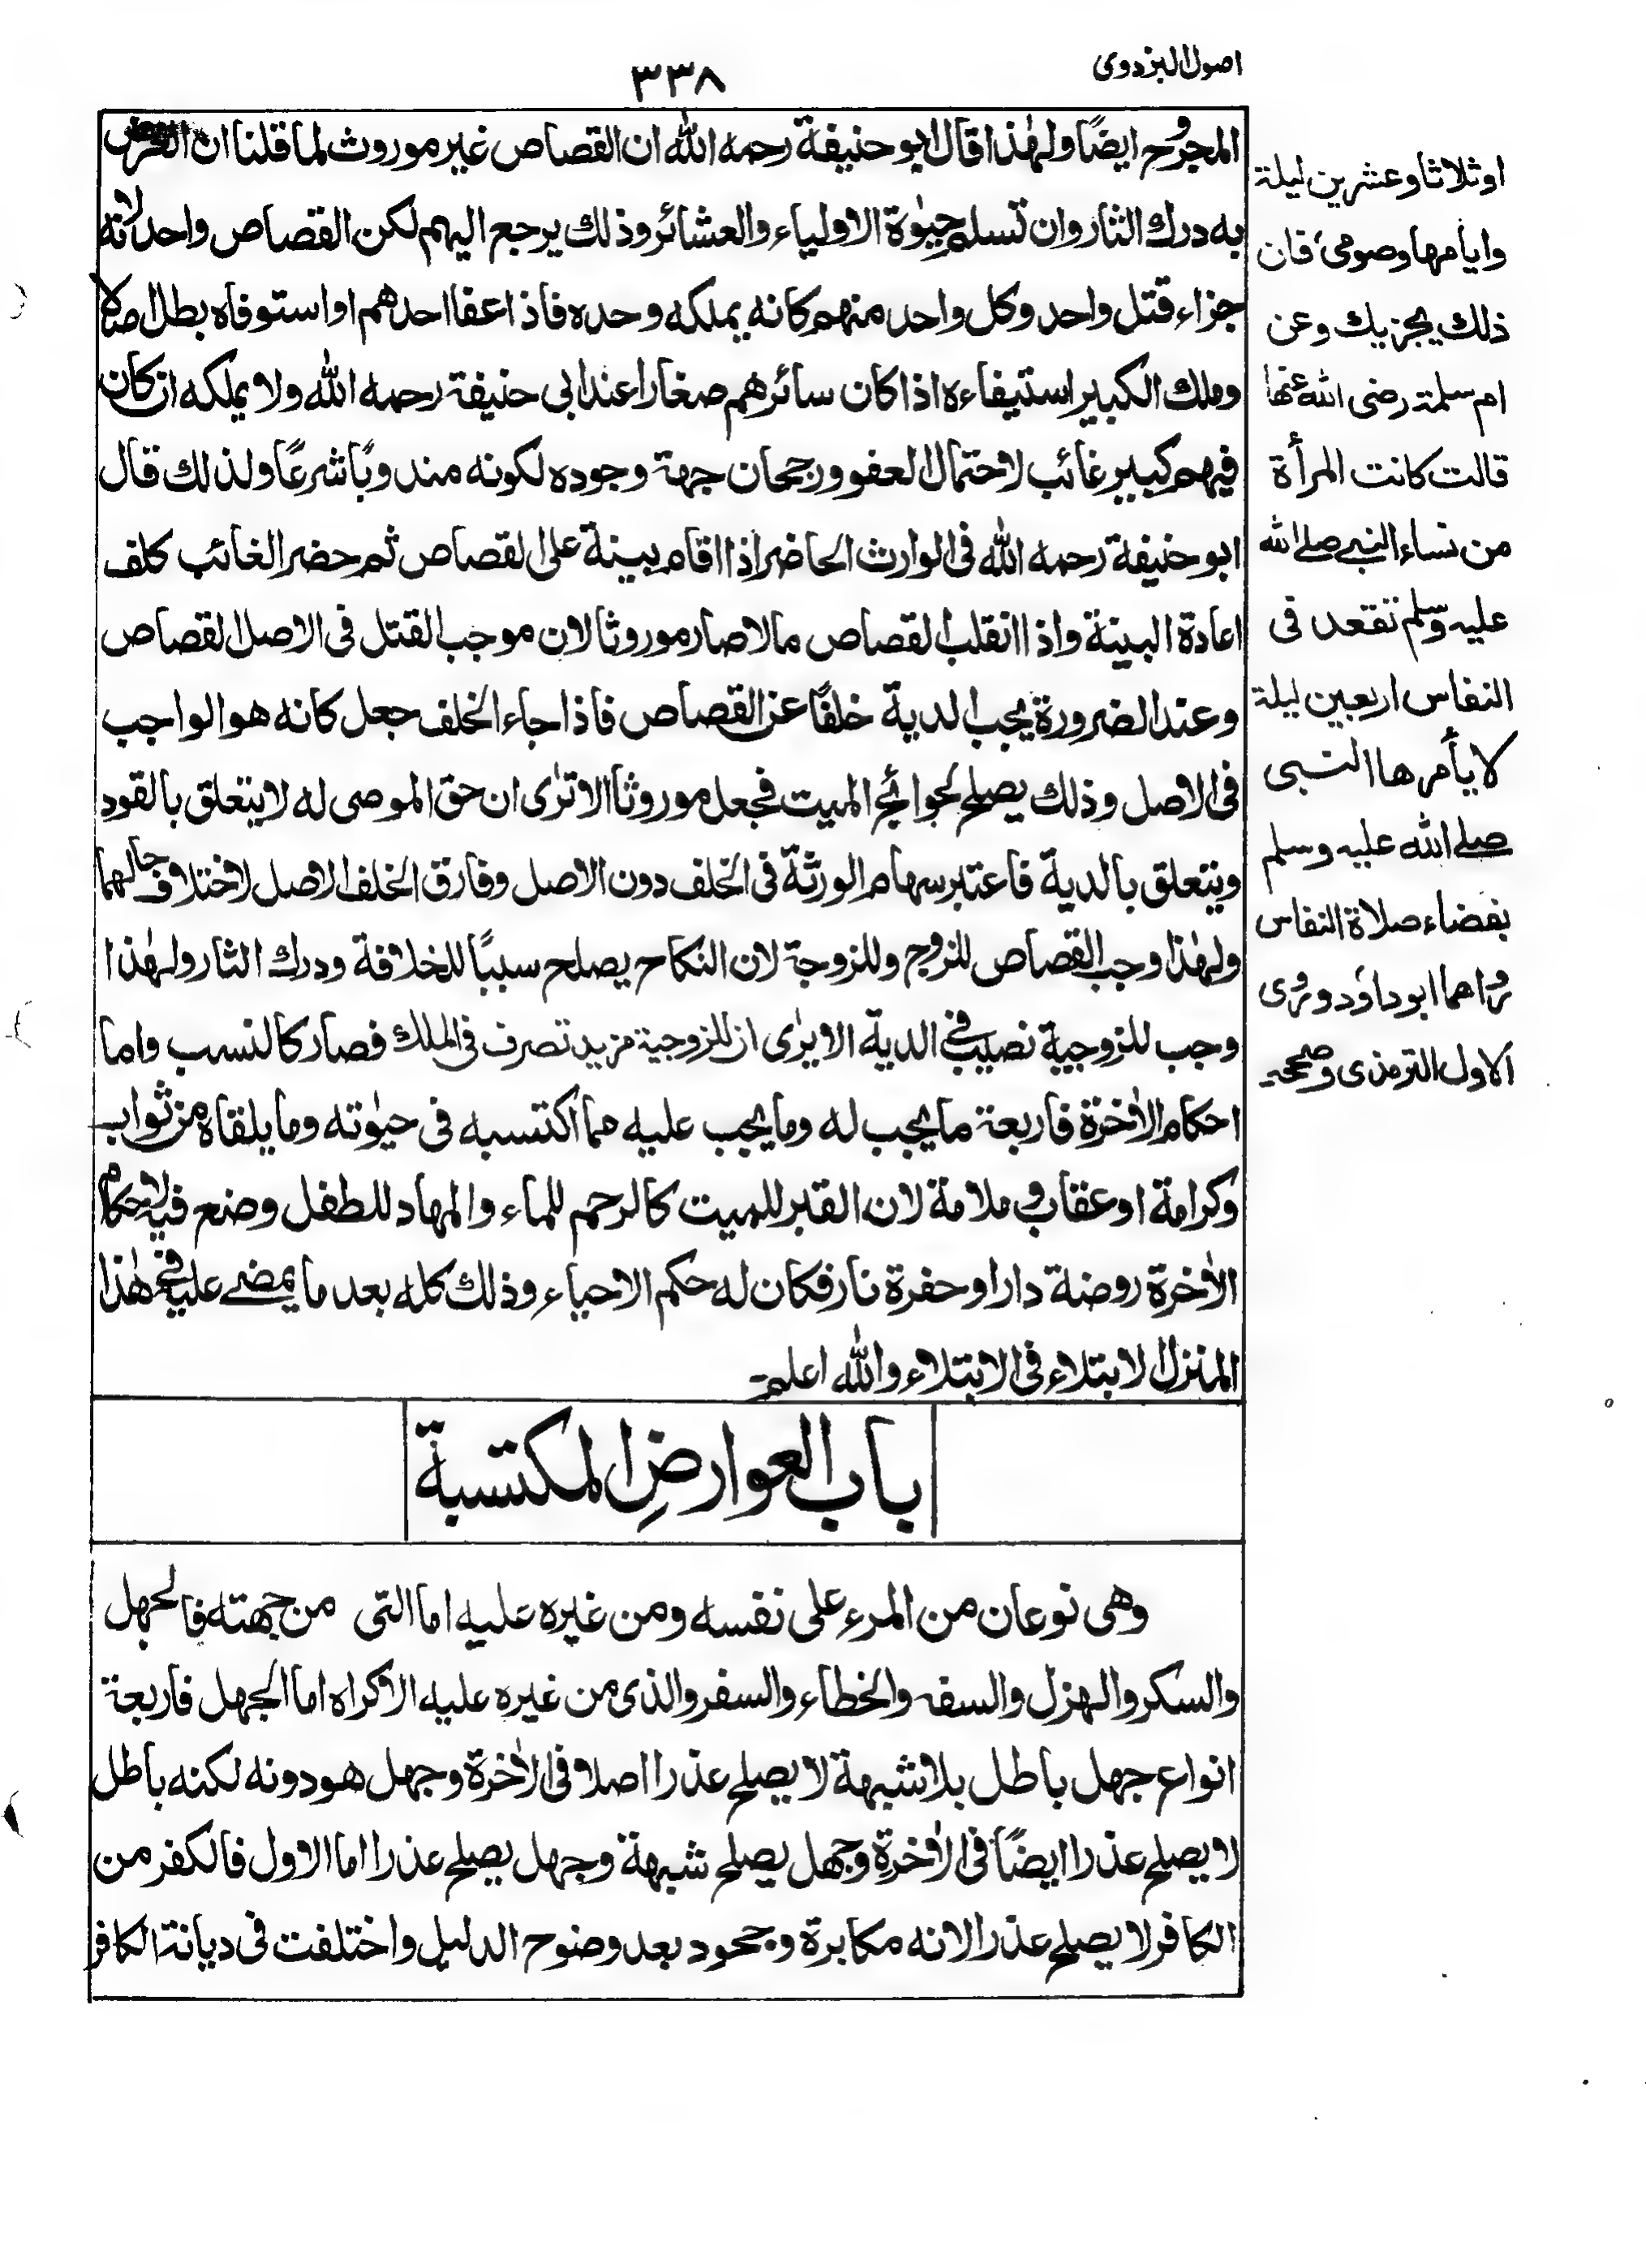 اصول البزدوی
٣٣٨
المجروح ايضًا ولهٰذا قال ابو حنيفة رحمه الله ان القصاص غير موروث لما قلنا ان الغرض
به درك الثار وان تسلم حيٰوة الاولياء والعشائر وذلك يرجع اليهم لكن القصاص واحد لانه
جزاء قتل واحد وكل واحد منهم كانه يملكه وحده فاذا عفا احدهم او استوفاه بطل اصلا
وملك الكبير استيفاءه اذا كان سائرهم صغارا عند ابى حنيفة رحمه الله ولا يملكه ان كان
فيهم كبير غائب لاحتمال العفو ورجحان جهة وجوده لكونه مندوبًا شرعًا ولذلك قال
ابو حنيفة رحمه الله فى الوارث الحاضر اذا اقام بينة على القصاص ثم حضر الغائب كلف
اعادة البينة واذا انقلب القصاص مالا صار موروثا لان موجب القتل فى الاصل القصاص
وعند الضرورة يجب الدية خلفًا عن القصاص فاذا جاء الخلف جعل كانه هو الواجب
فى الاصل وذلك يصلح لحوائج الميت فجعل موروثا الا ترٰى ان حق الموصى له لا يتعلق بالقود
ويتعلق بالدية فاعتبر سهام الورثة فى الخلف دون الاصل وفارق الخلف الاصل لاختلاف حالهما
ولهٰذا وجب القصاص للزوج وللزوجة لان النكاح يصلح سببًا للخلافة ودرك الثار ولهٰذا
وجب للزوجية نصيب فى الدية الا يرٰى ان للزوجية مزيد تصرف فى الملك فصار كالنسب واما
احكام الاٰخرة فاربعة ما يجب له وما يجب عليه مما اكتسبه فى حيٰوته وما يلقاه من ثواب
وكرامة او عقاب و ملامة لان القبر للميت كالرحم للماء والمهاد للطفل وضع فيه لاحكام
الاٰخرة روضة دار او حفرة نار فكان له حكم الاحياء وذلك كله بعد ما يمضے عليه فى هٰذا
المنزل الابتلاء فى الابتلاء والله اعلم
باب العوارضِ المكتسبة
وهى نوعان من المرء على نفسه ومن غيره عليه اما التى من جهته فالجهل
والسكر والهزل والسفه والخطاء والسفر والذى من غيره عليه الاكراه اما الجهل فاربعة
انواع جهل باطل بلا شبهة لا يصلح عذرا اصلا فى الاٰخرة وجهل هو دونه لكنه باطل
لا يصلح عذرا ايضًا فى الاٰخرة وجهل يصلح شبهة وجهل يصلح عذرا اما الاول فالكفر من
الكافر لا يصلح عذرا لانه مكابرة وجحود بعد وضوح الدليل واختلفت فى ديانة الكافر
او ثلاثا وعشرين ليلة
وايامها وصومى، فان
ذلك يجزيك وعن
ام سلمة رضى الله عنها
قالت كانت المرأة
من نساء النبى صلے الله
عليه وسلم تقعد فى
النفاس اربعين ليلة
لا يأمرها النبى
صلے الله عليه وسلم
بقضاء صلاة النفاس
رواهما ابو داؤد وروى
الاول الترمذى وصححه